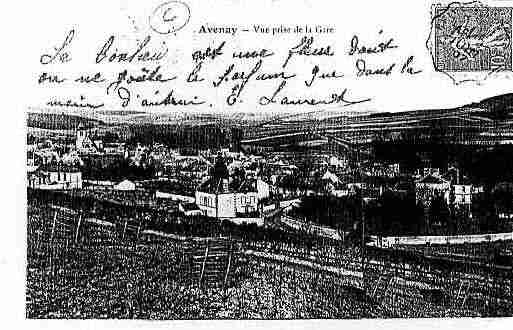 6
Avenay — Vue prise de la Gare
Le Bonheur est une fleur dont
on ne goûte le parfum que dans la
main d'autrui. E. Laurent